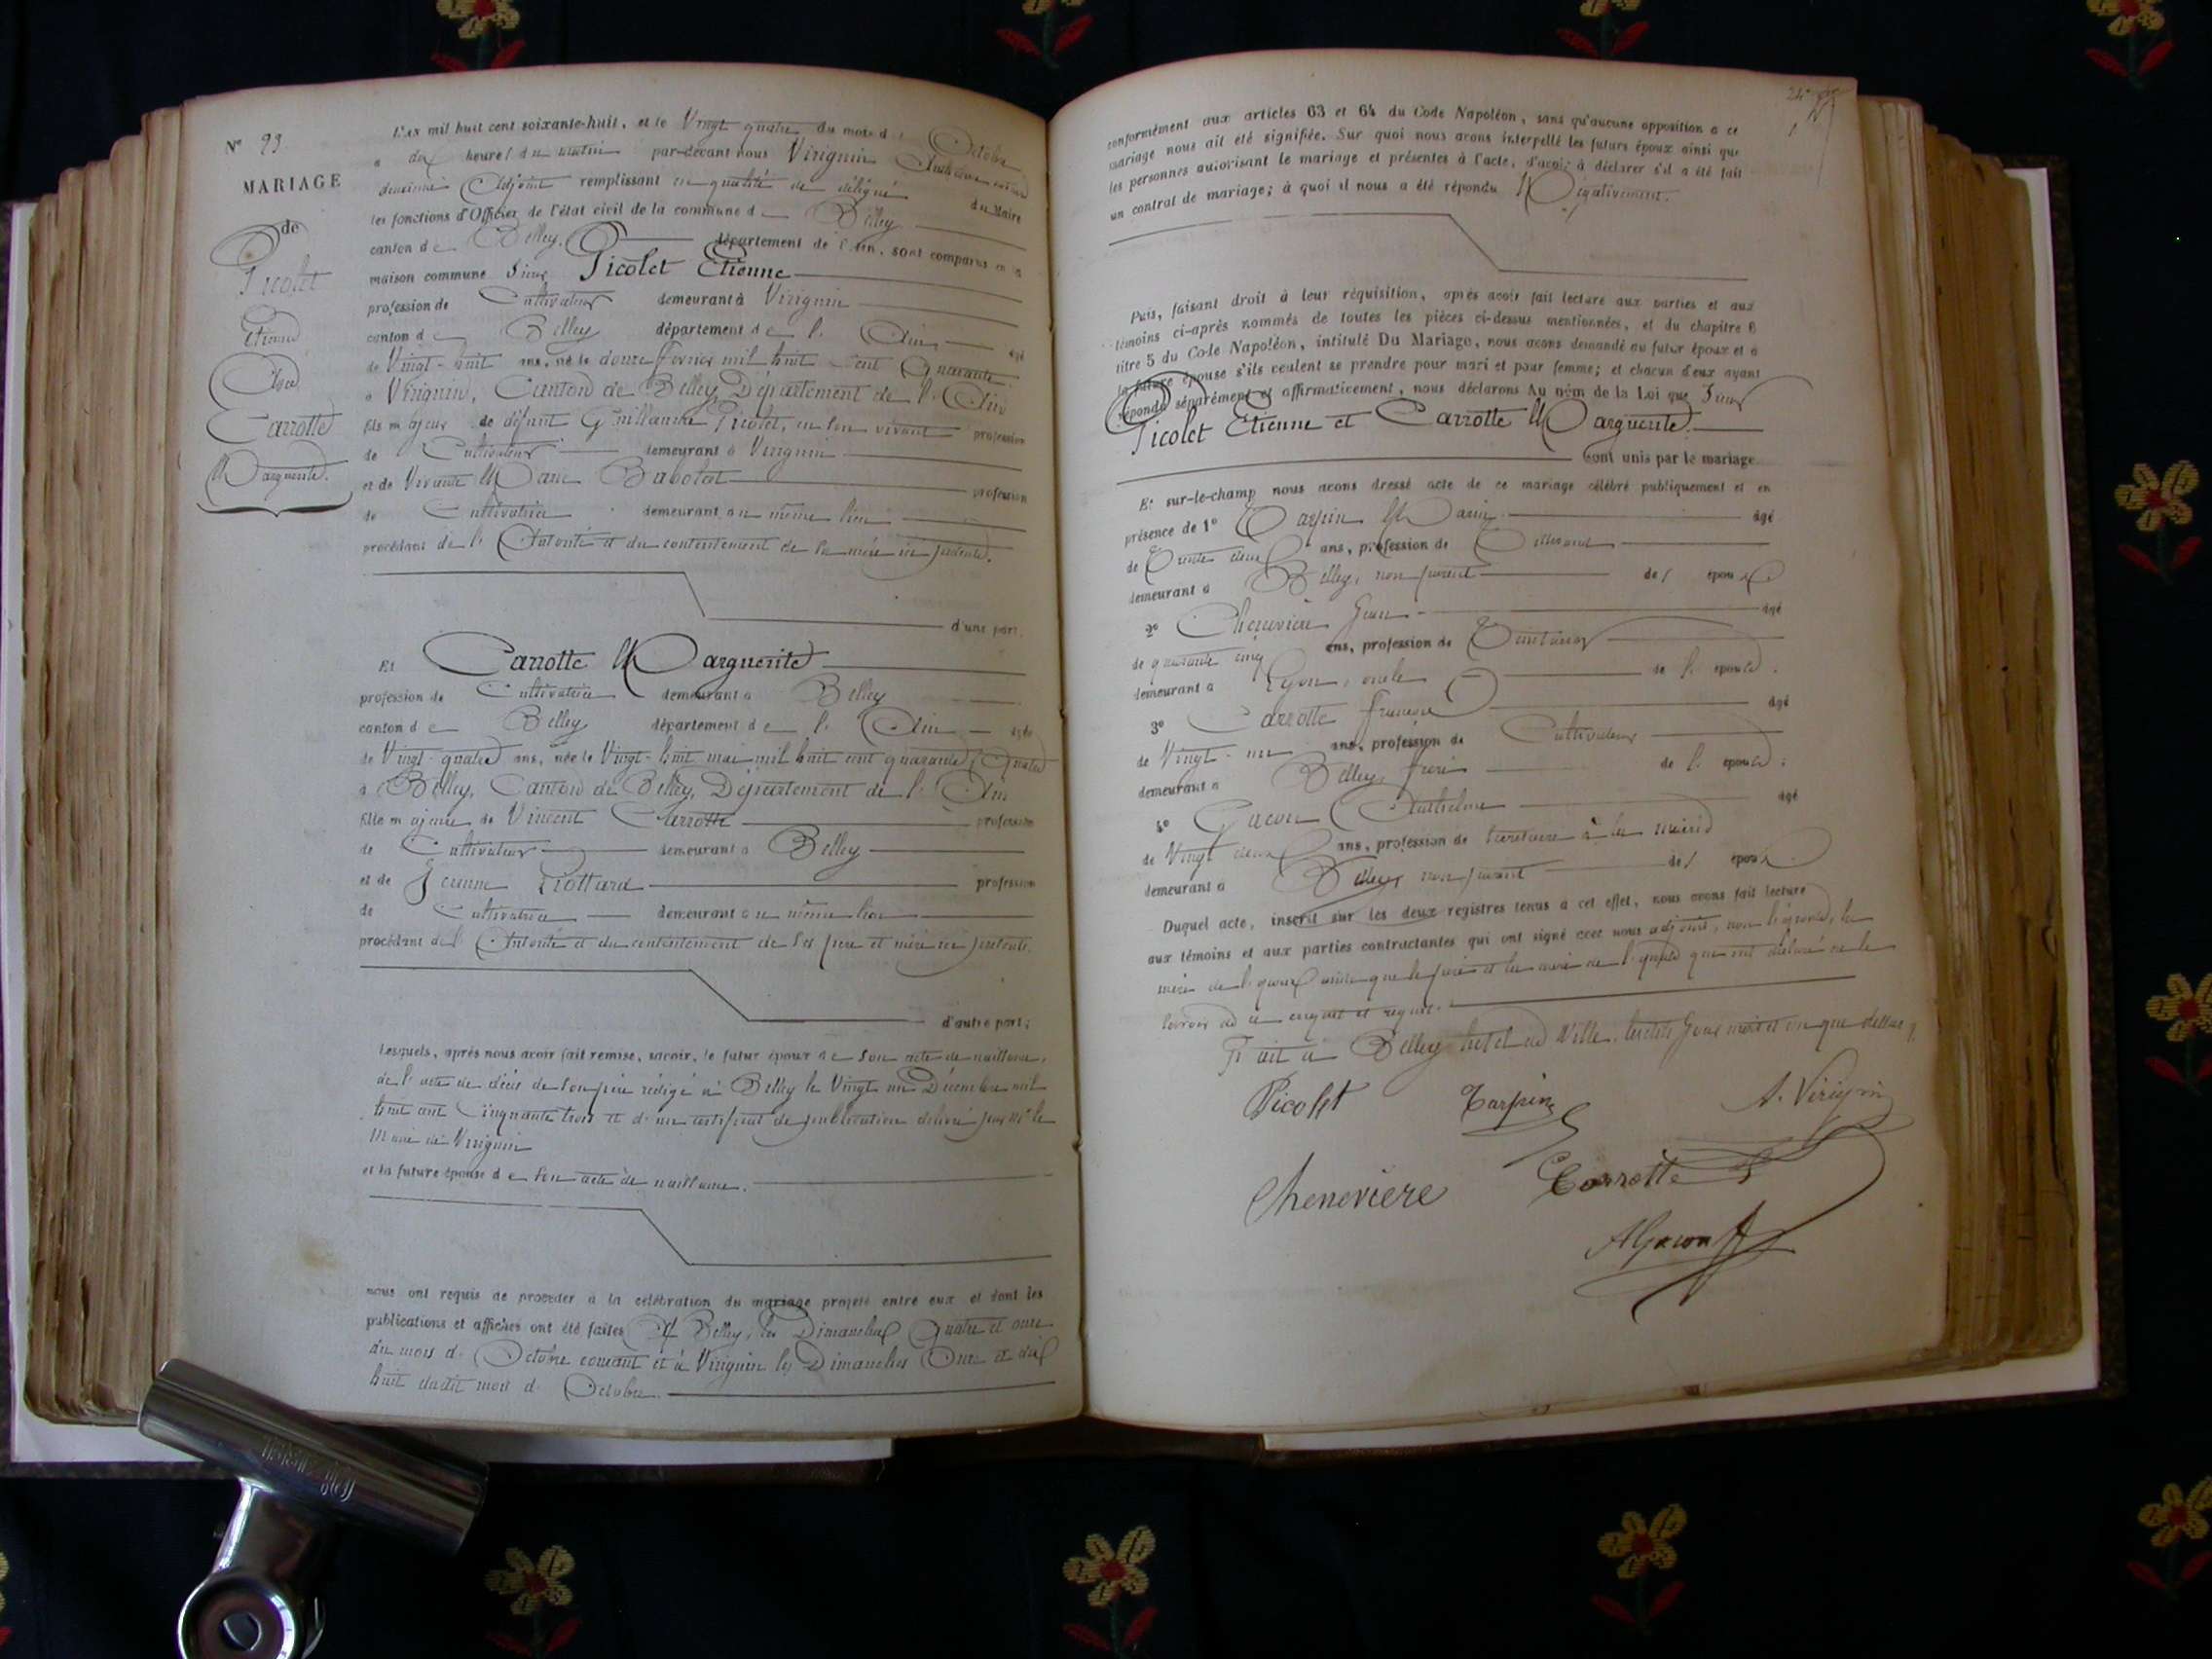 N° 99.
MARIAGE
de
Picolet
Etienne
Et
Carrotte
Marguerite.
L'an mil huit cent soixante-huit, et le Vingt quatre du mois d' Octobre
à dix heures du matin par-devant nous Virignin Anthelme
deuxième Adjoint remplissant en qualité de délégué du Maire
les fonctions d'Officier de l'état civil de la commune de Belley
canton de Belley, département de l'Ain, sont comparus en la
maison commune Sieur Picolet Etienne
profession de Cultivateur demeurant à Virignin
canton de Belley département de l'Ain âgé
de Vingt-huit ans, né le douze février mil huit cent quarante
à Virignin, Canton de Belley, Département de l'Ain
fils majeur de défunt Guillaume Picolet, en son vivant profession
de Cultivateur demeurant à Virignin
et de Vivante Marie Babolat profession
de Cultivatrice demeurant au même lieu
procédant de l'Autorité et du contentement de sa mère ici présente.
d'une part.
Et Carrotte Marguerite
profession de Cultivatrice demeurant à Belley
canton de Belley département de l'Ain âgée
de Vingt-quatre ans, née le Vingt-huit mai mil huit cent quarante quatre
à Belley, Canton de Belley, Département de l'Ain
fille majeure de Vincent Carrotte profession
de Cultivateur demeurant à Belley
et de Jeanne Piottard profession
de Cultivatrice demeurant au même lieu
procédant de l'Autorité et du contentement de ses père et mère ici présents.
d'autre part;
Lesquels, après nous avoir fait remise, savoir, le futur époux de son acte de naissance,
de l'acte de décès de son père rédigé à Belley le Vingt un Décembre mil
huit cent Cinquante trois et d'un certificat de publication délivré par Mr le
Maire de Virignin
et la future épouse de son acte de naissance.
nous ont requis de procéder à la célébration du mariage projeté entre eux et dont les
publications et affiches ont été faites à Belley, les Dimanches Quatre et onze
du mois d'Octobre courant et à Virignin les Dimanches Onze et dix
huit dudit mois d'Octobre.
conformément aux articles 63 et 64 du Code Napoléon, sans qu'aucune opposition à ce
mariage nous ait été signifiée. Sur quoi nous avons interpellé les futurs époux ainsi que
les personnes autorisant le mariage et présentes à l'acte, d'avoir à déclarer s'il a été fait
un contrat de mariage; à quoi il nous a été répondu Négativement.
Puis, faisant droit à leur réquisition, après avoir fait lecture aux parties et aux
témoins ci-après nommés de toutes les pièces ci-dessus mentionnées, et du chapitre 6
titre 5 du Code Napoléon, intitulé Du Mariage, nous avons demandé au futur époux et à
la future épouse s'ils veulent se prendre pour mari et pour femme; et chacun d'eux ayant
répondu séparément et affirmativement, nous déclarons Au nom de la Loi que Sieur
Picolet Etienne et Carrotte Marguerite.
sont unis par le mariage.
Et sur-le-champ nous avons dressé acte de ce mariage célébré publiquement et en
présence de 1° Tarpin Marin âgé
de Trente deux ans, profession de
demeurant à Belley, non parent des époux
2° Chenevière Jean âgé
de quarante cinq ans, profession de
demeurant à Lyon, oncle de l'épouse.
3° Carrotte François âgé
de Vingt-un ans, profession de Cultivateur
demeurant à Belley, frère de l'épouse;
4° Gacon Anthelme âgé
de Vingt deux ans, profession de secrétaire à la mairie
demeurant à Belley, non parent des époux.
Duquel acte, inscrit sur les deux registres tenus à cet effet, nous avons fait lecture
aux témoins et aux parties contractantes qui ont signé avec nous adjoint, non l'épouse, la
mère de l'époux ainsi que le père et la mère de l'épouse qui ont déclaré ne le
savoir de ce enquis et requis.
Fait à Belley hôtel de Ville, lesdits jour mois et an que dessus.
Picolet Tarpin A. Virignin
Chenevière Carrotte
A Gacon